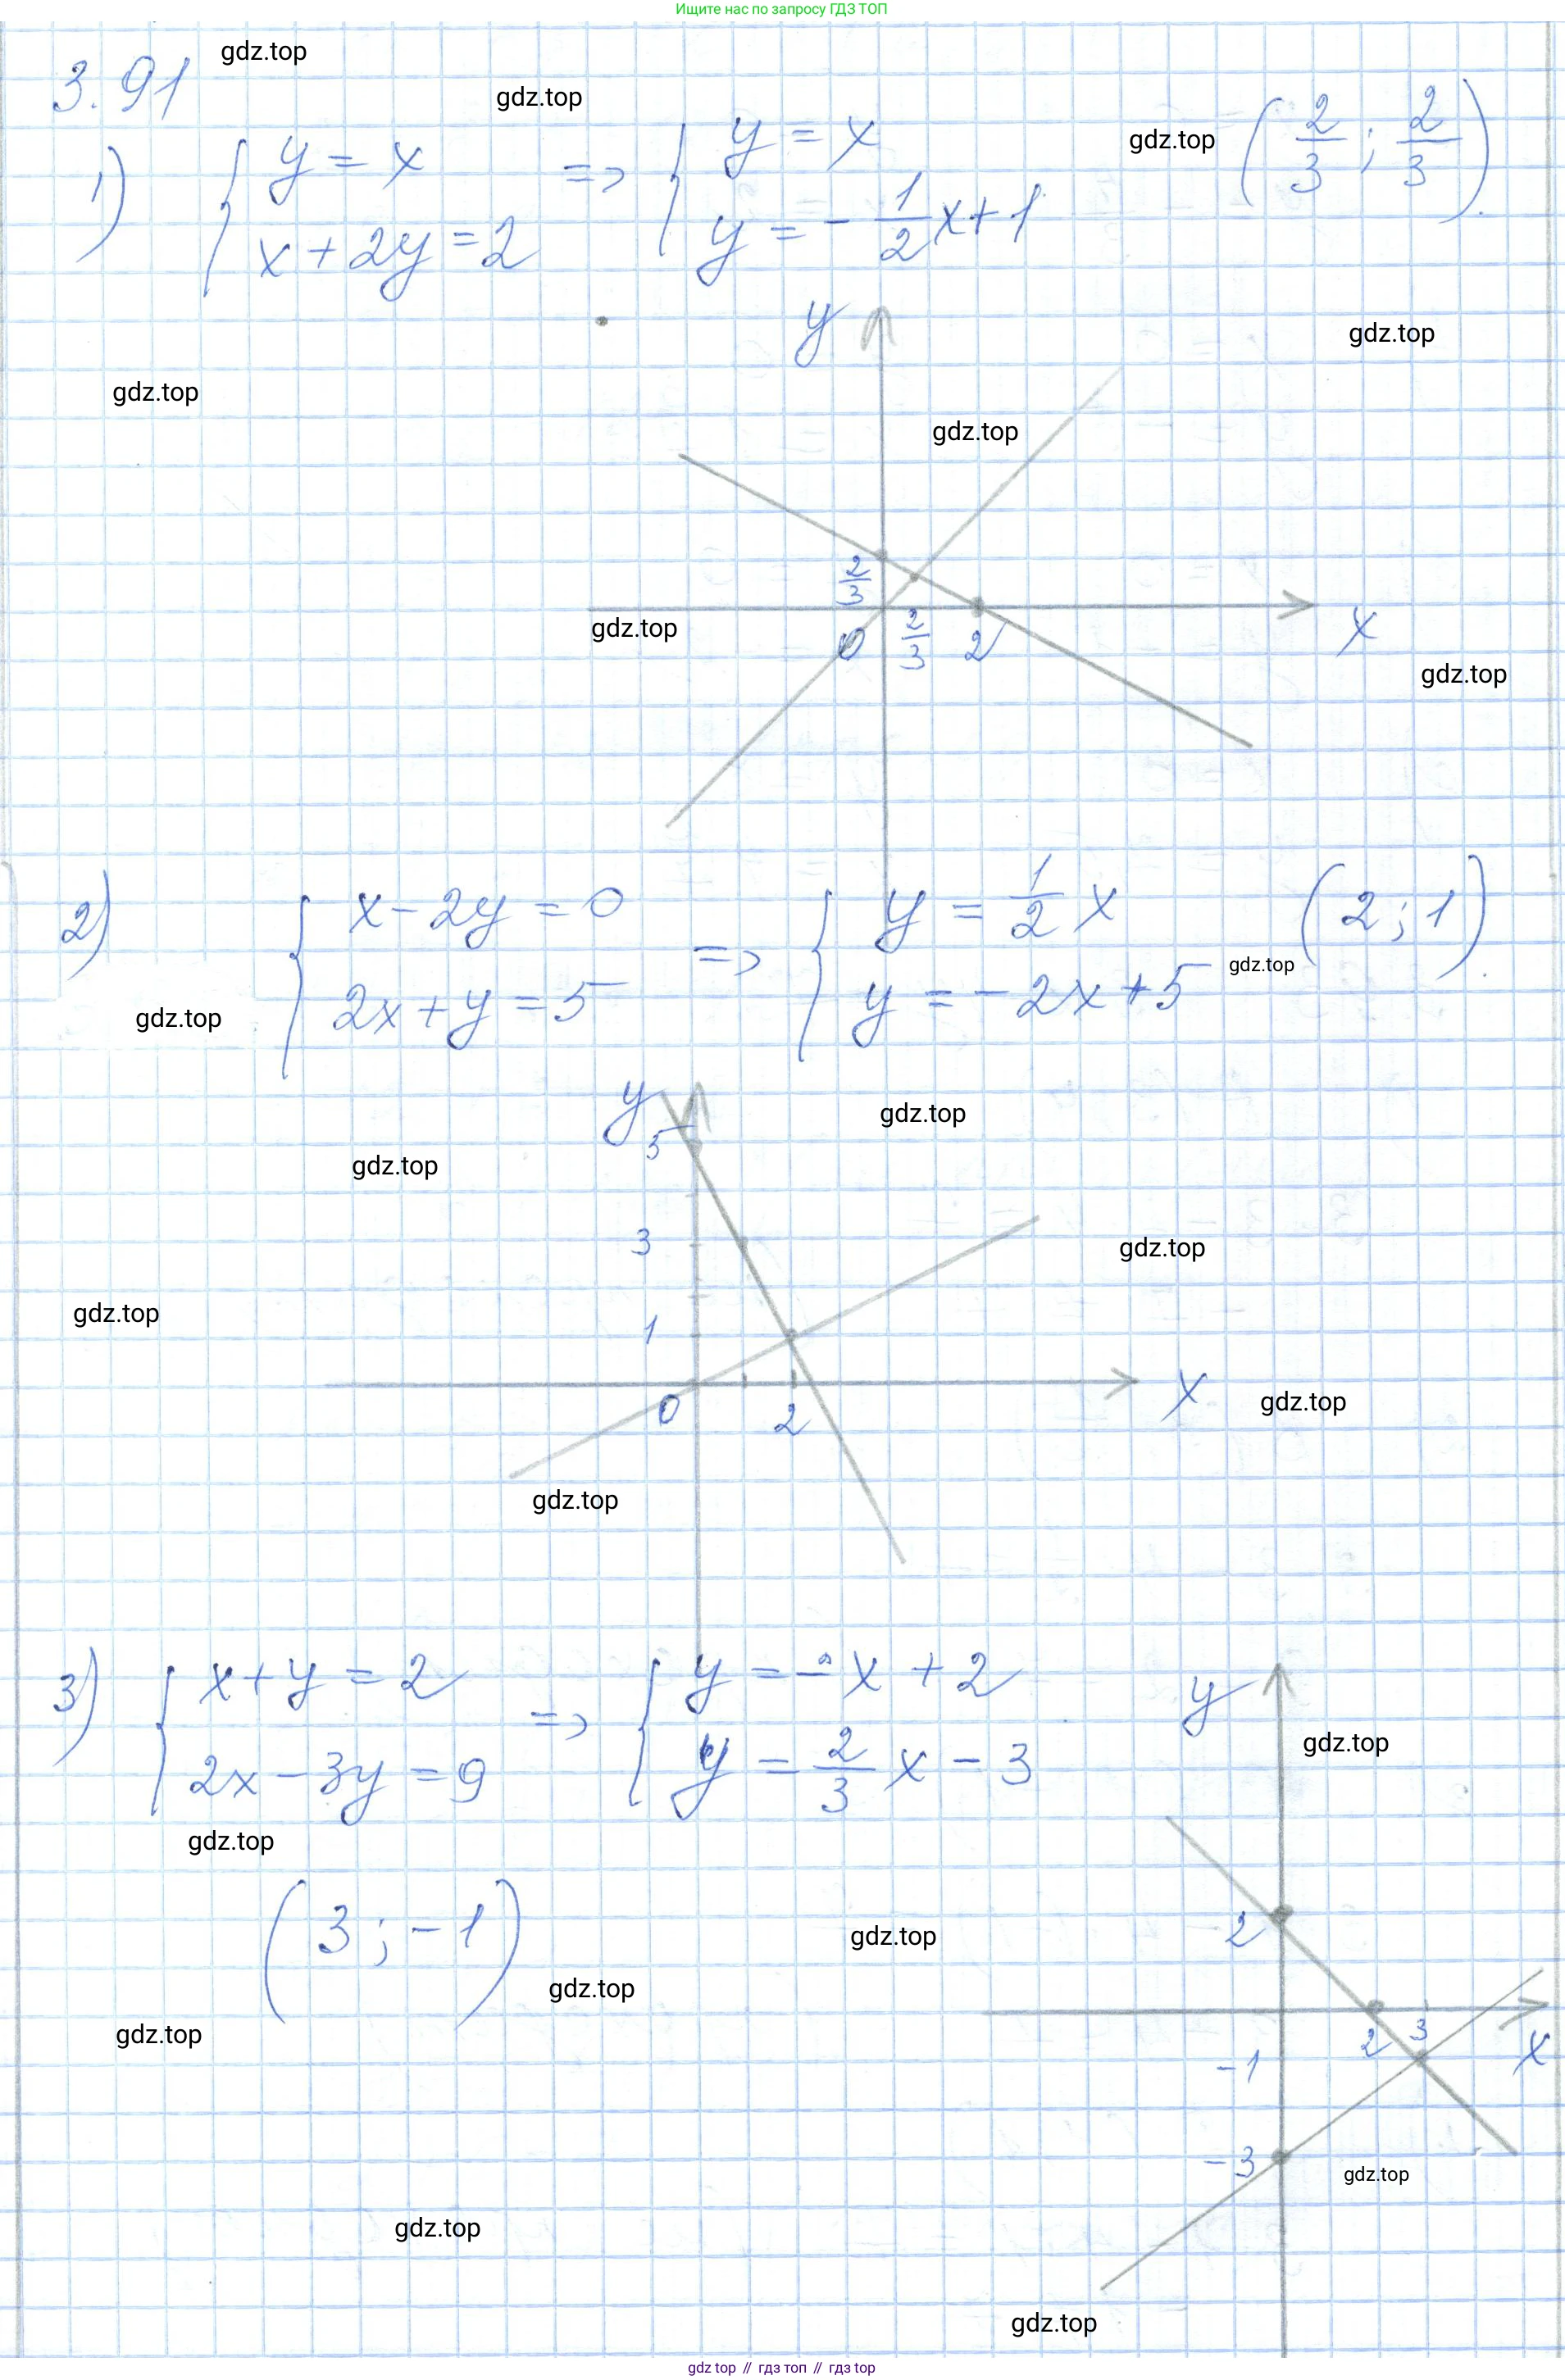 Ищите нас по запросу ГДЗ ТОП
gdz.top
3.91
gdz.top
1) { y = x => { y = x gdz.top (2/3 ; 2/3).
x + 2y = 2 y = - 1/2 x + 1
y
gdz.top
gdz.top
gdz.top
2/3
gdz.top
0 2/3 2 x
gdz.top
2) { x - 2y = 0 => { y = 1/2 x (2 ; 1).
2x + y = 5 y = - 2x + 5 gdz.top
gdz.top
y
gdz.top
5
gdz.top
3
gdz.top
gdz.top
1
x
gdz.top
0 2
gdz.top
3) { x + y = 2 => { y = - x + 2
2x - 3y = 9 y = 2/3 x - 3
y
gdz.top
gdz.top
(3 ; - 1)
2
gdz.top
gdz.top
gdz.top
2 3 x
-1
-3
gdz.top
gdz.top
gdz.top
gdz top // гдз топ // гдз top